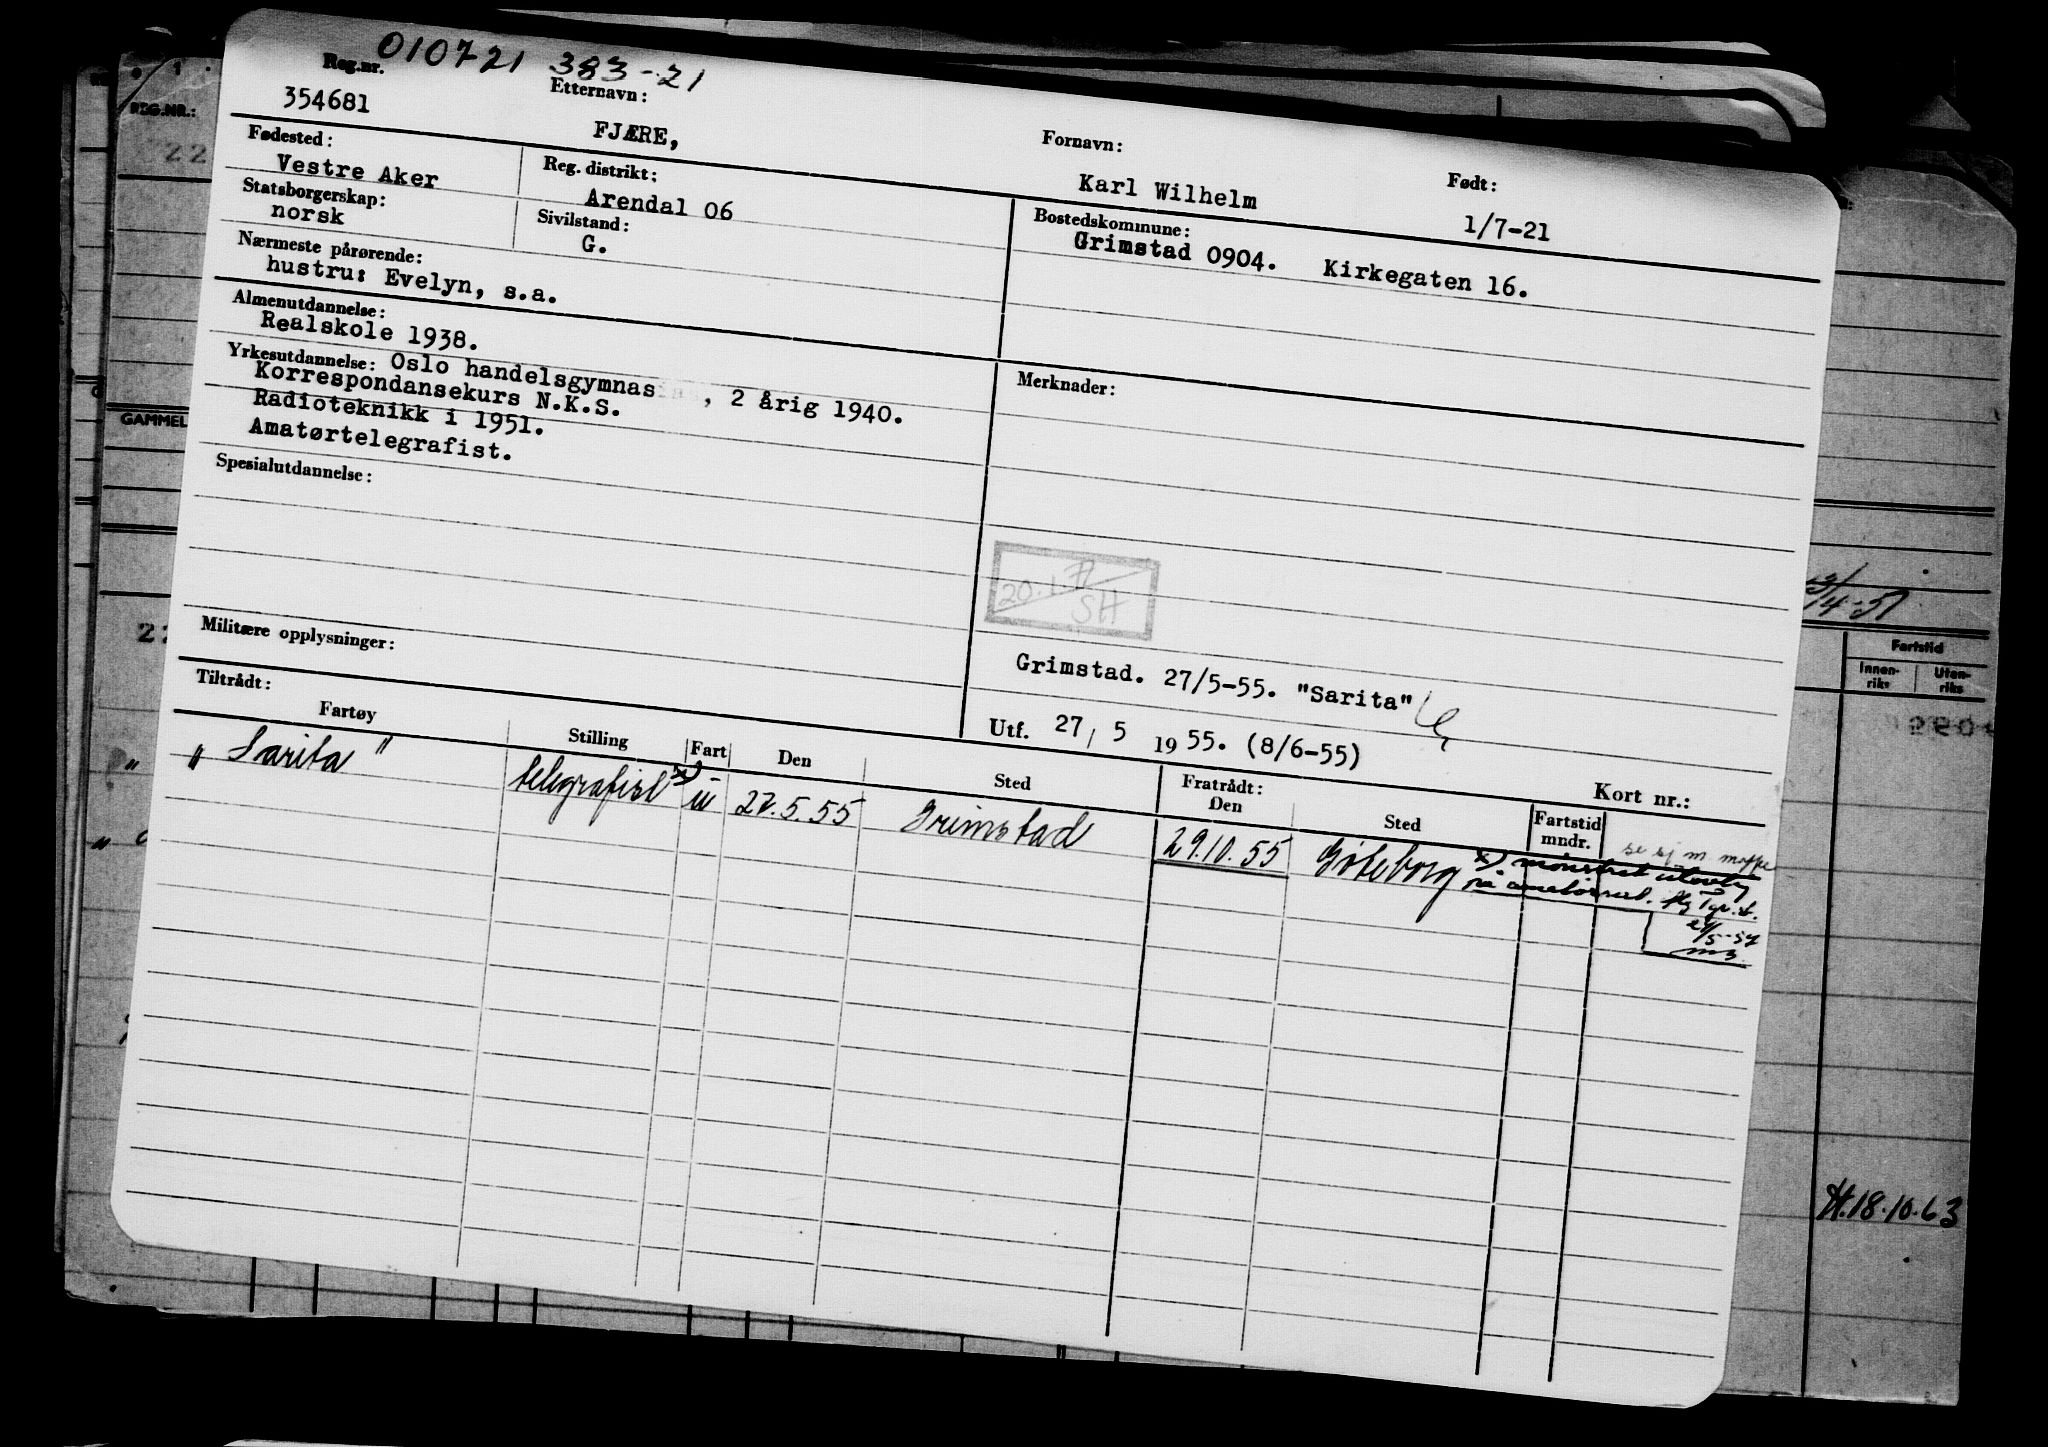 010721 383-21
Reg.nr.
354681
Etternavn:
FJÆRE,
Fornavn:
Karl Wilhelm
Født:
1/7-21
Fødested:
Vestre Aker
Reg. distrikt:
Arendal 06
Bostedskommune:
Grimstad 0904. Kirkegaten 16.
Statsborgerskap:
norsk
Sivilstand:
G.
Nærmeste pårørende:
hustru: Evelyn, s.a.
Almenutdannelse:
Realskole 1938.
Yrkesutdannelse: Oslo handelsgymnas , 2 årig 1940.
Korrespondansekurs N.K.S.
Radioteknikk i 1951.
Amatørtelegrafist.
Merknader:
Spesialutdannelse:
20.1.71
SH
Militære opplysninger:
Grimstad. 27/5-55. "Sarita"
Utf. 27/5 1955. (8/6-55)
Kort nr.:
Tiltrådt:
Fartøy
Stilling
Fart
Den
Sted
Fratrådt:
Den
Sted
Fartstid
mndr.
"Sarita" telegrafist x) u 27.5.55 Grimstad 29.10.55 Göteborg
se sj m mappe
x) mønstret ulovlig
på amatørsert.
/5-57
REG.NR.:
22
GAMMEL
22
14-51
Fartstid
Innen-
riks
Uten-
riks
H.18.10.63